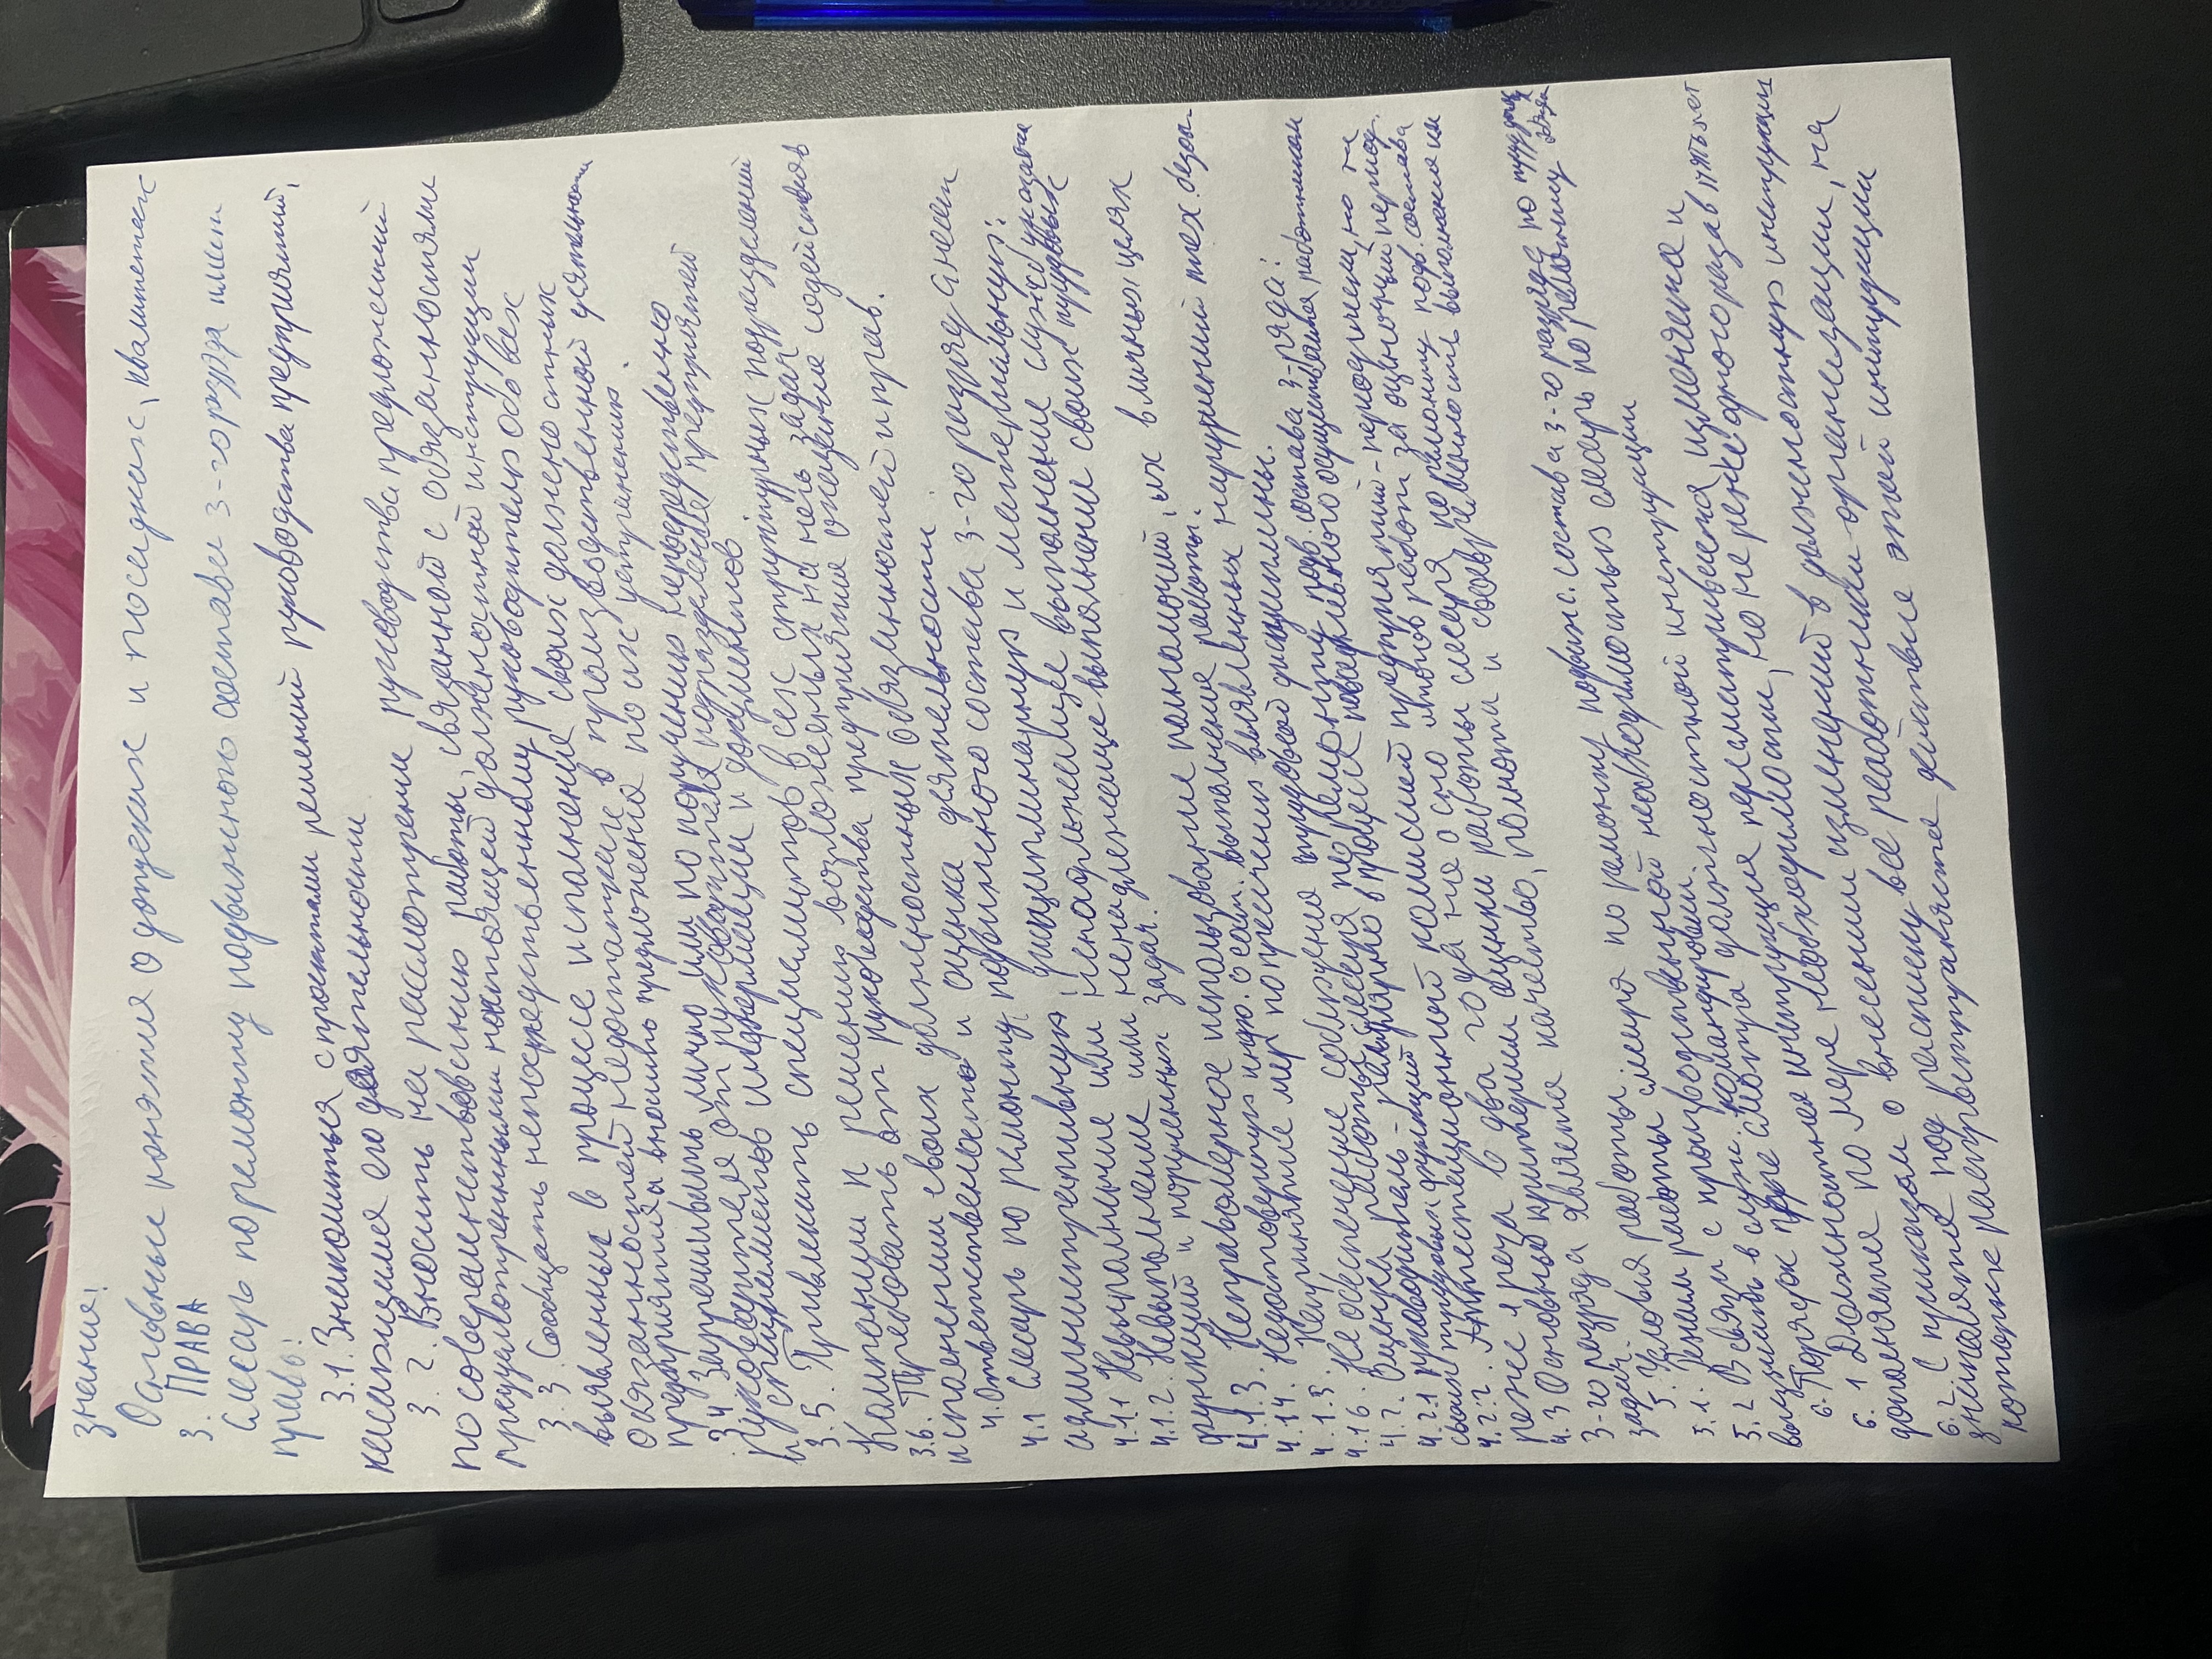 знения!
Основные понятия о допусках и посадках, квалитетах
3. ПРАВА
Слесарь по ремонту подвижного состава 3-го разряда имеет
право:
3.1. Знакомиться с проектами решений руководства предприятий,
касающимися его деятельности
3.2. Вносить на рассмотрение руководства предложения
по совершенствованию работы, связанной с обязанностями
предусмотренными настоящей должностной инструкции
3.3 Сообщать непосредственному руководителю обо всех
выявленных в процессе исполнение своих должностных
обязанностей недостатках в производственной деятельности
предприятия и вносить предложение по их устранению.
3.4 Запрашивать лично или по поручению непосредственно
руководителя от руководителя подразделение предприятий
и специалистов информации и документов
3.5. Привлекать специалистов всех структурных подразделений
компании к решению возложенных на него задач
3.6. Требовать от руководства предприятие оказание содействия
исполнении своих должностных обязанностей и прав.
4. Ответственность и оценка деятельности
4.1 Слесарь по ремонту подвижного состава 3-го разряда несет
административную, дисциплинарную и материальную:
4.1.1 Невыполнение или ненадлежащее выполнение служеб указания
4.1.2. Невыполнение или ненадлежаще выполнении своих трудовых
функций и порученных задач.
4.1.3. Неправомерное использование полномочий, их в личных целях
4.14. Недостоверную инф. о сост. выполнение работы.
4.1.5. Непринятие мер по пресечению выявленных нарушений тех. безоп.
4.1.6. Не обеспечение соблрдения трудовой дисциплины.
4.2. Оценка работы слесаря по ремонту подв. состава 3-ряда:
4.2.1 руководитель - регулярно в процессе повседневного осуществления работником
своих трудовых функций
4.2.2. Аттестационной комиссией предприятий - периодически, но не
реже 1 раза в два года на основе итогов работы за оценочный период.
4.3 Основные критерии оценки работы слесаря по ремонту подв. состава
3-го разряда является качество, полнота и своевременность выполнения им
задач.
5. Условия работы слесаря по ремонту подвиж. состава 3-го разряда
5.1. Режим работы
5.2 В связи с производственной необходимостью слесарь по ремонту
выезжать в служ. командировки.
6. Порядок пересмотра должностной инструкции
6.1 Должностная инструкция пересматривается, изменяется и
дополняется по мере необходимости, но не реже одного раз в пять лет
6.2 С приказом о внесении изменений в должностную инструкцию
знакомятся под роспись все работники организации, на
которых распространяется действие этой инструкции